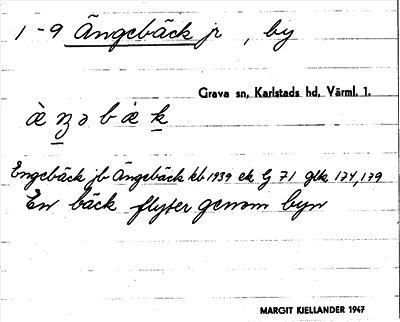 1-9 Ängebäck jr , by
Grava sn, Karlstads hd, Värml. l.
Engebäck jb Ängebäck kb 1939 ek G 71 glk 174,179
En bäck flyter genom byn
MARGIT KJELLANDER 1947